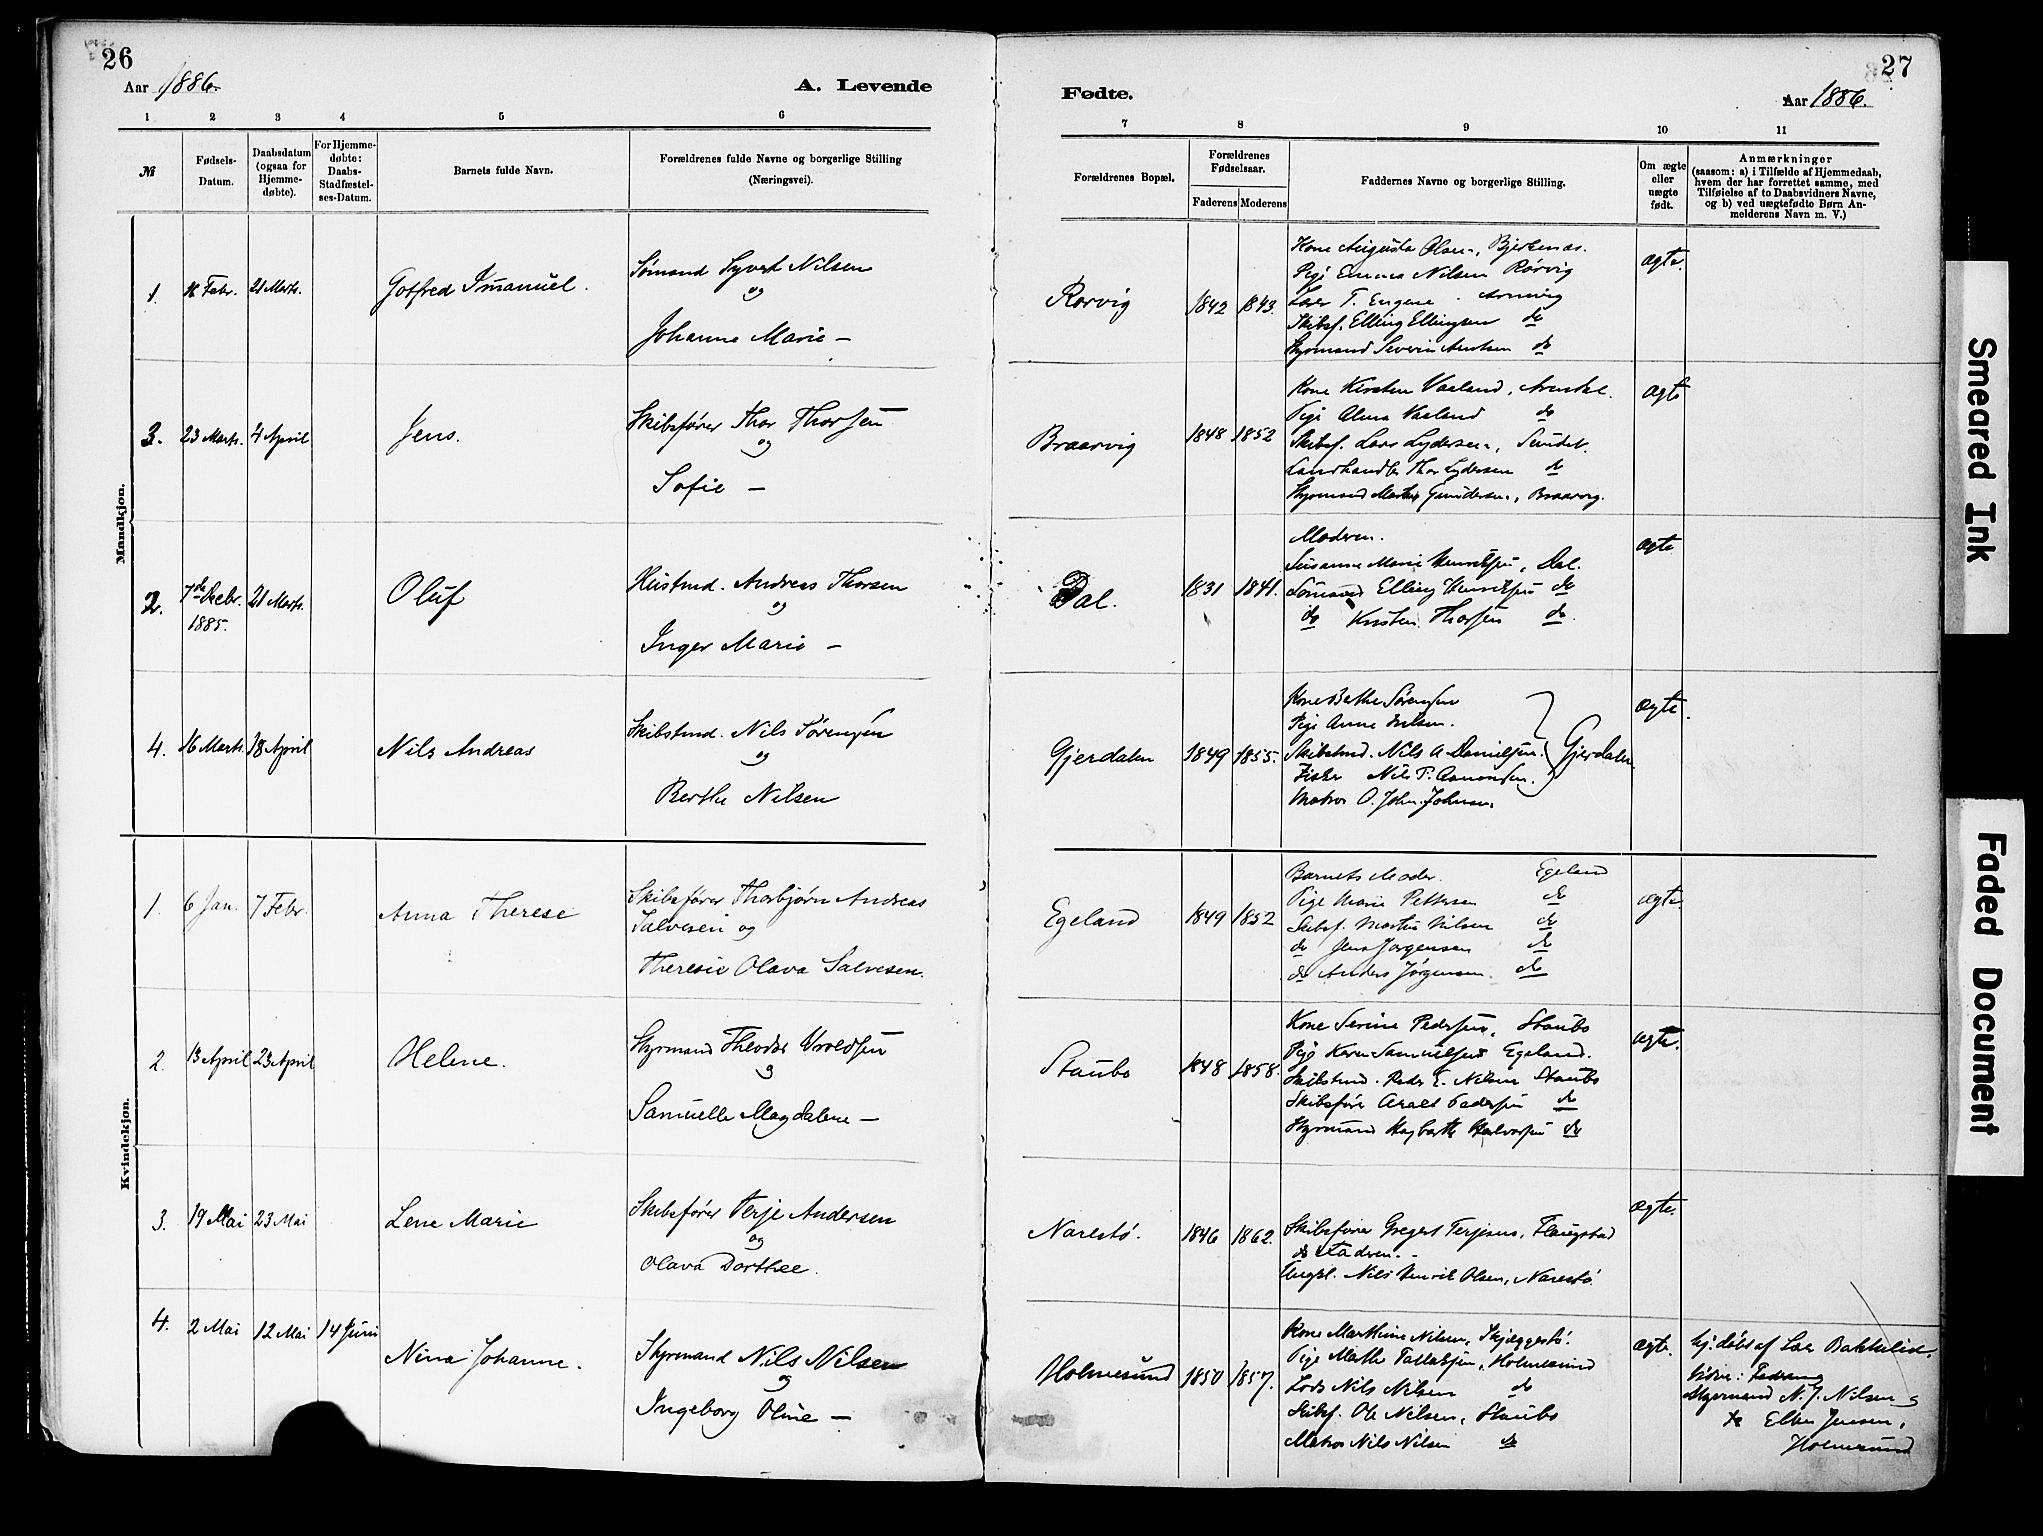 26
Aar 1886.
A. Levende
1 2 3 4 5 6
№
Fødsels-Datum.
Daabsdatum (ogsaa for Hjemme-døbte).
For Hjemme-døbte: Daabs-Stadfæstel-ses-Datum.
Barnets fulde Navn.
Forældrenes fulde Navne og borgerlige Stilling
(Næringsvei).
Mandkjøn.
1. Febr. 21 Marts. Gotfred Imanuel. Sømand Syvert Nilsen
og
Johanne Marie —
3. 23 Marts. 4 April Jens. Skibsfører Thor Thorsen
og
Sofie —
2. 7de Decbr. 1885. 21 Marts. Oluf Huusmd. Andreas Thorsen
og
Inger Marie —
4. 16 Marts. 18 April Nils Andreas Skibstmd. Nils Sørensen
og
Berthe Nilsen
Kvindekjøn.
1. 6 Jan. 7 Febr. Anna Therese Skibsfører Thorbjørn Andreas
Salvesen og
Theresie Olava Salvesen.
2. 13 April 23 April Helene. Styrmand Theodor
og
Samuelle Magdalene —
3. 19 Mai 23 Mai Lene Marie Skibsfører Terje Andersen
og
Olava Dorthee.
4. 2 Mai 12 Mai 14 Juni Nina Johanne. Styrmand Nils Nilsen
og
Ingeborg Oline —
27
Fødte.
Aar 1886.
7 8 9 10 11
Forældrenes Bopæl.
Forældrenes Fødselsaar.
Faderens Moderens
Faddernes Navne og borgerlige Stilling.
Om ægte eller uægte født.
Anmærkninger
(saasom: a) i Tilfælde af Hjemmedaab,
hvem der har forrettet samme, med
Tilføielse af to Daabsvidners Navne,
og b) ved uægtefødte Børn An-
melderens Navn m. V.)
Rørvig 1842 1843. ægte.
Kone Augusta Olsen, Bjelkenæs.
Pige Emma Nilsen Rørvig
T. Engene
Skibsf. Elling Ellingsen do
Styrmand Severin do
Braarvig 1848 1852 ægte
Kone Kirsten Vaaland,
Pige Alma Vaaland do
Skibsf. Lars Lydersen,
Landhandler Thor Lydersen do
Styrmand Gundersen, Braarvig.
Dal. 1831 1841. ægte
Moderen.
Susanne Marie Henriksen, Dal.
Sømand Elling Henriksen do
do Kristen Thorsen do.
Gjerdalen 1849 1855. ægte.
Kone Berthe Sørensen
Pige Anne Nilsen.
Skibstmd. Nils A Danielsen. Gjerdalen.
Fisker Nils P. Aamonsen.
Matros O. John Johnsen
Egeland 1849 1852 ægte.
Barnets Moder. Egeland
Pige Marie Pettersen do
Skibsf. Martin Nilsen do
do Jens Jørgensen do
do Anders Jørgensen. do
Staubo 1848 1858. ægte.
Kone Serine Pedersen, Staubo
Pige Karen Samuelsen Egeland.
Skibstmd. Peder E. Nilsen Staubo
Skibsfører Pedersen do
Styrmand Hagbarth Halvorsen do
Narestø. 1846 1862. ægte.
Skibsfører Gregert Terjesen,
do Faderen.
Ungkl. Nils Henrik Olsen, Narestø.
Holmesund 1850 1857. ægte.
Kone Marthine Nilsen, Skjæggestø.
Pige Mathe Tallaksen, Holmesund
Lods Nils Nilsen do
Skibsf. Ole Nilsen, Staubo
Matros Nils Nilsen do
hj. døbt af Bakkelid.
Vidner: Faderen
Styrmand N. J. Nilsen
Ellen Jensen,
Holmesund
Smeared Ink
Faded Document